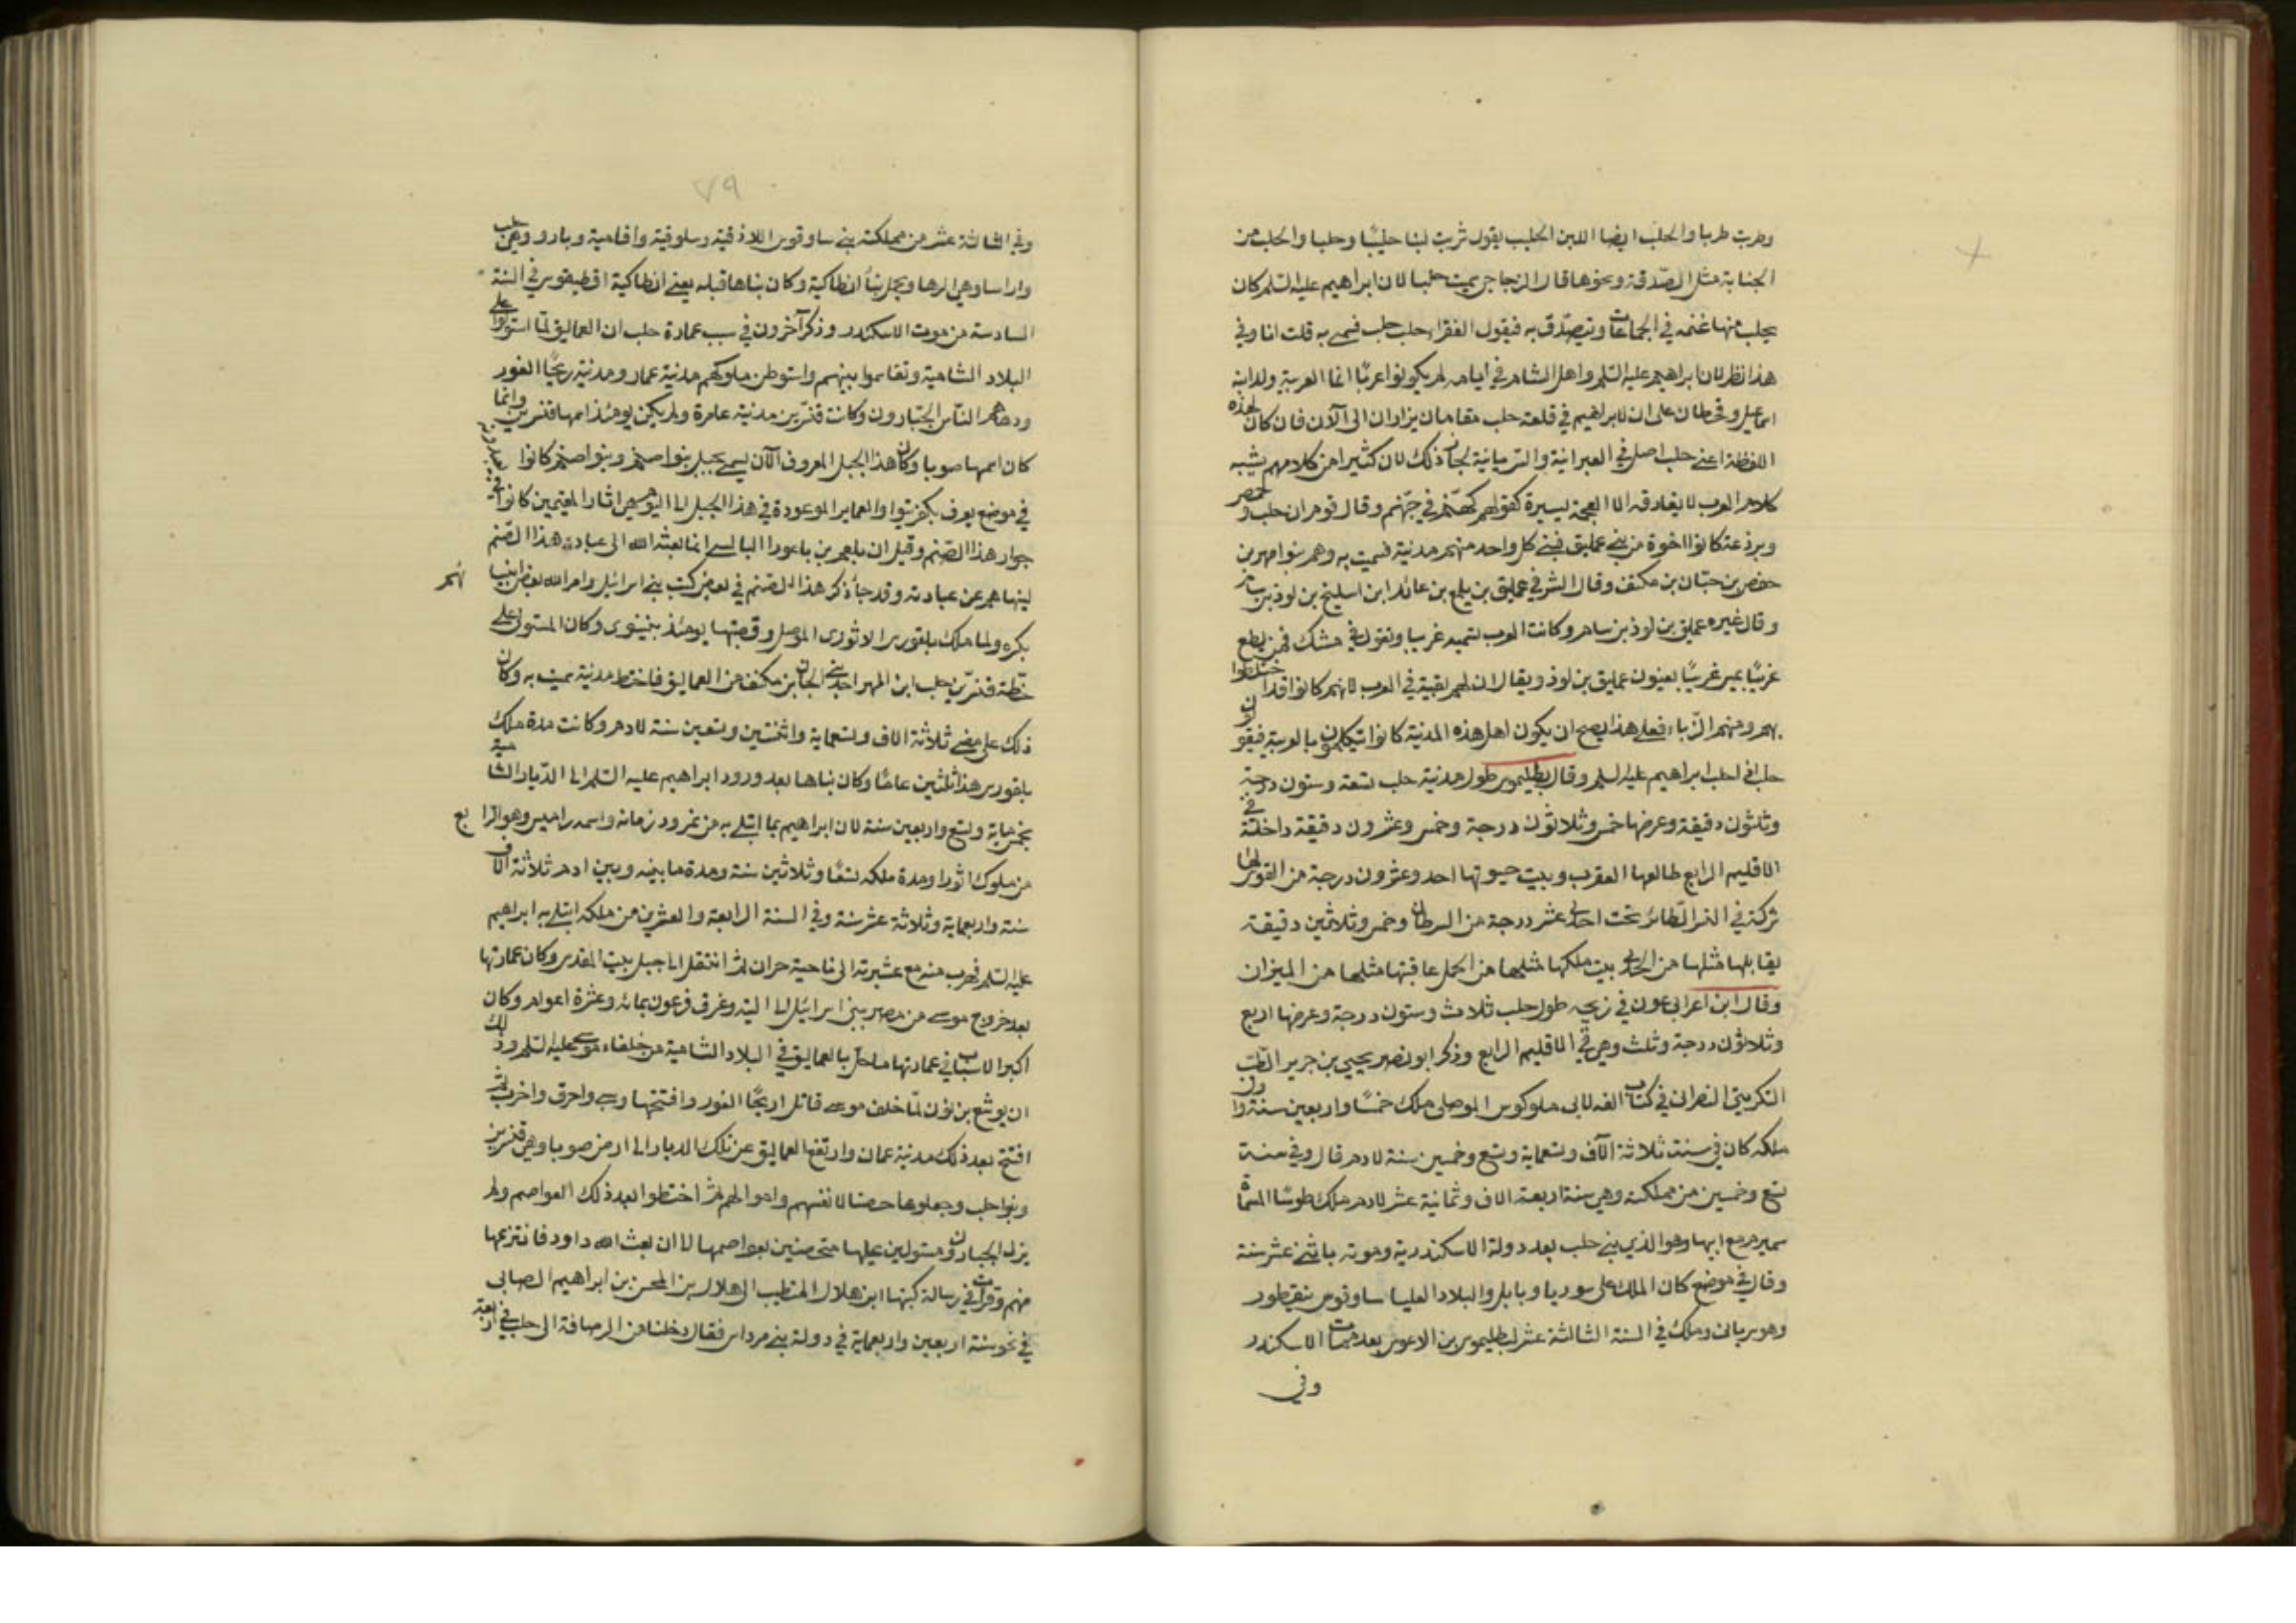 وطربت طربا والحلب ايضا اللبن الحليب يقول شربت لبنا حليبًا وحلبا والحلب من
الجباية مثل الصّدقة ونحوها قال الزجاجي سميت حلبا لان ابراهيم عليه السلم كان
يحلب منها غنمه في الجماعات ويتصدّق به فيقول الفقراء حلب حلب فسمى به قلت انا وفي
هذا نظر لان ابراهيم عليه السّلم واهل الشام في ايامه لم يكونوا عربًا انما العربية ولد ابنه
اسماعيل وقحطان على ان لابراهيم في قلعة حلب مقامان يزاران الى الآن فان كان لهذه
اللفظة اعني حلب اصل في العبرانية والسّريانية لجاز ذلك لان كثيرا من كلامهم يشبه
كلام العرب لا يفارقه الا العجمة يسيرة كقولهم كهنّم في جهنّم وقال قوم ان حلب وحمص
وبرذعة كانوا اخوة من بني عمليق فبنى كل واحد منهم مدينة فسميت به وهم بنو امهر بن
حفص بن جبان بن مكنف وقال الشرفي عمليق بن يلمع بن عائذ ابن اسليخ بن لوذ بن سام
وقال غيره عمليق بن لوذ بن سام وكانت العرب تسميه غريبا وتقول في مثلك فمن يطع
غريبًا يمس غريبًا يعنون عمليق بن لوذ ويقال ان لهم بقية في العرب لانهم كانوا قد اختلطوا
بهم ومنهم الزّباء فعلى هذا يصح ان يكون اهل هذه المدينة كانوا يتكلمون بالعربية فيقولون
حلب اذا حلب ابراهيم عليه السلم وقال بطليموس طول مدينة حلب تسعة وستون درجة
وثلثون دقيقة وعرضها خمس وثلاثون درجة وخمس وعشرون دقيقة داخلة في
الاقليم الرابع طالعها العقرب وبيت حيوتها احد وعشرون درجة من القوس لها
شركة في النسر الطائر تحت احدى عشر درجة من السرطان وخمس وثلاثين دقيقة
يقابلها مثلها من الجدي بيت ملكها مثلها من الحمل عاقبتها مثلها من الميزان
وقال ابن اعرابي عون في زيجه طول حلب ثلاث وستون درجة وعرضها اربع
وثلاثون درجة وثلث وهي في الاقليم الرابع وذكر ابو نصر يحيى بن جرير الطبيب
التكريتي النصراني في كتاب الفه لابي ملوكوس الموصلي ملك خمسًا واربعين سنة واول
ملكه كان في سنة ثلاثة الآف وتسعماية وتسع وخمسين سنة لادم قال وفي سنة
تسع وخمسين من مملكته وهي سنة اربعة الاف وثمانية عشر لادم ملك طوسًا المسماة
سميرم مع ابيها وهو الذي بنى حلب بعد دولة الاسكندرية وموته باثني عشر سنة
وقال في موضع كان الملك على سوريا وبابلر والبلاد العليا ساوقوس نيقطور
وهو سرياني وملك في السنة الثالثة عشر لبطليموس بن الاغوس بعد ممات الاسكندر
وفى
٧٩
وفي الثالثة عشر من مملكته بنى ساوقوس اللاذقية وسلوقية وافامية وبارو وهي حلب
واراسا وهي الرها وبجل بنا انطاكية وكان بناها قبله يعني انطاكية افطيغوس في السنة
السادسة من موت الاسكندر وذكر آخرون في سبب عمارة حلب ان العماليق لمّا استولوا على
البلاد الشامية وتقاسموا بينهم واستوطن ملوكهم مدينة عمار ومدينة ريحًا الغور
ودعاهم النّاس الجبّارون وكانت قنسرين مدينة عامرة ولم يكن يومئذ اسمها قنسرين وانما
كان اسمها صوبا وكان هذا الجبل المعروف الآن يسمى بجبل بنوا صنم وبنوا صنم كانوا يعبدونه
في موضع يعرف بكفر نبوا والعماير الموجودة في هذا الجبل الى اليوم هي اثار المقيمين كانوا في
جوار هذا الصّنم وقيل ان بلعم بن باعورا البالسي انما بعثه الله الى عبادة هذا الصّنم
لينهاهم عن عبادته وقد جاء ذكر هذا الصّنم في بعض كتب بني اسرائيل وامر الله بعض انبيا ئهم
بكره ولما ملك بلقورس الاثوري الموصل وقصبتها يومئذ بنينوى وكان المستولى على
خطّة قنسرّين حلب ابن المهر احد بني الجان بن مكنف من العماليق فاختط مدينة سميت به وكان
ذلك على مضى ثلاثة الاف وتسعماية واثنتين وتسعين سنة لادم وكانت مدة ملك
بلقورس هذا ثلثين عامًا وكان بناها بعد ورود ابراهيم عليه السّلم الى الدّيار الشامية
بخمسماية وتسع واربعين سنة لان ابراهيم بما ابتلى به من نمرود زمانه واسمه راميس وهو الرا بع
من ملوك اثورا ومدة ملكه تسعًا وثلاثين سنة ومدة ما بينه وبين ادم ثلاثة الاف
سنة واربعماية وثلاثة عشر سنة وفي السنة الرابعة والعشرين من ملكه ابتلى به ابراهيم
عليه السّلم فهرب منه مع عشيرته الى ناحية حران ثم انتقل الى جبل بيت المقدس وكان عمارتها
بعد خروج موسى من مصر ببني اسرائيل الى التيه وغرق فرعون بمائة وعشرة اعوام وكان
اكبر الاسباب في عمارتها ما حلّ بالعماليق في البلاد الشامية من خلفاء موسى عليه السّلم وذلك
ان يوشع بن نون لمّا خلف موسى قاتل اريحًا الغور وافتتحها وسبى واحرق واخرب ثم
افتتح بعد ذلك مدينة عمان وارتفع العماليق عن تلك الديار الى ارض صوبا وهي قنسرين
وبنوا حلب وجعلوها حصنا لانفسهم واموالهم ثم اختطوا بعد ذلك العواصم ولم
يزل الجبارون مستولين عليها متحصنين بعواصمها الا ان بعث الله داود فانتزعها
منهم وقرات في رسالة كتبها ابن هلال المتطبب الى هلال بن المحسن بن ابراهيم الصابى
في نحو سنة اربعين واربعماية في دولة بني مرداس فقال دخلنا من الرصافة الى حلب في اربعة